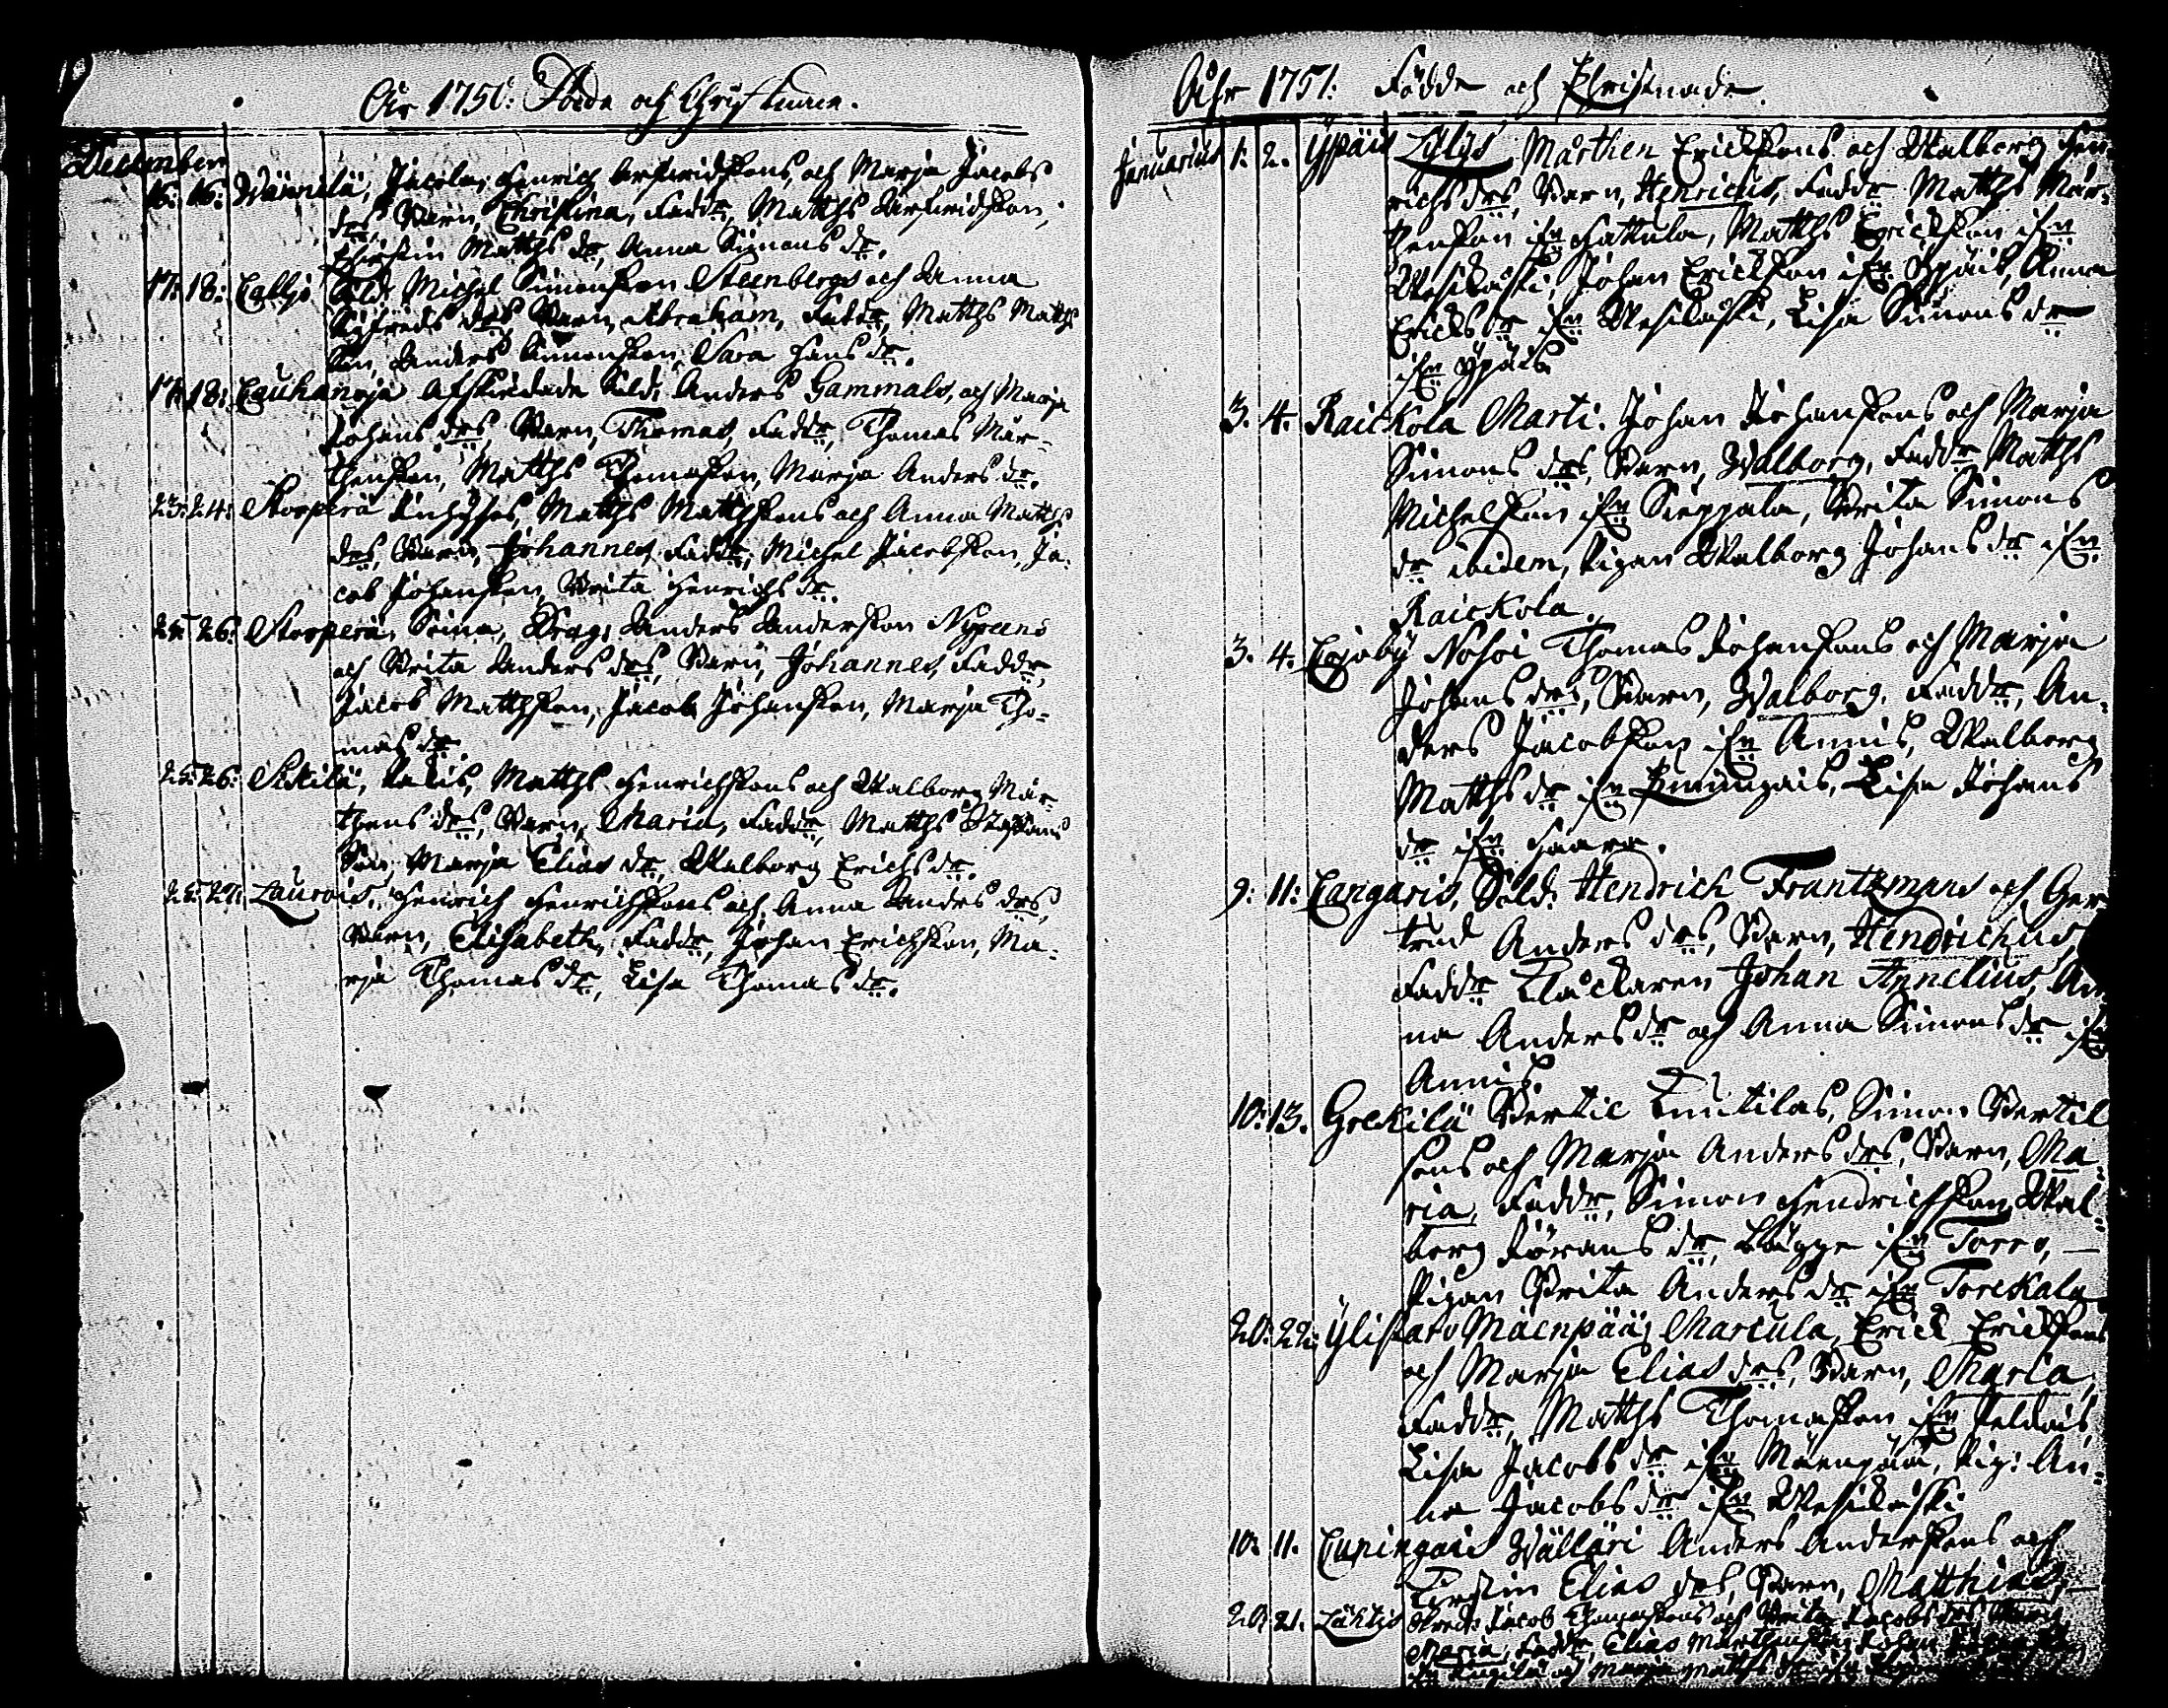 Åir 1750: Födde och Christnade.
December
16. 16: Wännilä, Jacola, Henrich Arfwidssons, och Marja Jacobs
drs, Barn, Christina, Faddr, Matths Arfwidsson,
Kirstin Matths dr, Anna Simons dr.
17. 18: Sold. Michel Simonsson Steenbergs och Anna
Sigfreds drs, Barn, Abraham, Faddr, Matths Matths
Son, Anders Simonsson, Sara Hans dr.
17. 18: Cauhanoja Afskedade Sold: Anders Gammals, och Marja
Johans drs, Barn, Thomas, Faddr, Thomas Mår-
thensson, Matths Thomasson, Marja Anders dr.
23: 24: Storperä Matths Matthssons och Anna Matths
drs, Barn, Johannes, Faddr, Michel Jacobsson, Ja-
cob Johansson, Brita Henrichs dr.
25. 26: Storperä, Drag: Anders Andersson Nypeens
och Brita Anders drs, Barn, Johannes, Faddr,
Jacob Matthsson, Jacob Johansson, Marja Tho-
mas dr.
25. 26: Matths Henrichssons och Walborg Mår-
thens drs, Barn, Maria, Faddr, Matths
Son, Marja Elias dr, Walborg Erichs dr.
25. 27: Laurois, Henrich Henrichssons och Anna Anders drs,
Barn, Elisabeth, Faddr, Johan Erichsson, Ma-
rja Thomas dr, Lisa Thomas dr.
Åhr 1751: Födde och Christnade.
Januarius 1: 2. Ypäis Zylys Mårthen Erickssons och Walborg Hen-
richs drs, Barn, Henricus, Faddr Matths Mår-
thensson ifrn Hattula, Matths Ericksson ifrn
Wesikåski, Johan Ericksson ifrn Ypäis, Anna
Ericks dr ifrn Wesikåski, Lisa Simons dr
ifrn Ypäis.
3. 4. Raickola Marti. Johan Johanssons och Marja
Simons drs, Barn, Walborg, Faddr Matths
Michelsson ifrn Sieppala, Brita Simons
dr ibidem, Pigan Walborg Johans dr ifrn
Raickola.
3. 4. Cojoby Nohoi Thomas Johanssons och Marja
Johans drs, Barn, Walborg, Faddr, An-
ders Jacobsson ifrn Annis, Walborg
Matths dr ifrn Lisa Johans
dr ifrn Haara.
9: 11: Cangaris, Sold: Hendrich Frantzmans och Ger
trud Anders drs, Barn, Hendrichus,
Faddr Klåckaren Johan Annelius, An
na Anders dr och Anna Simons dr ifrn
Annis.
10: 13. Greckilä Bertil Simon Bertil
sons och Marja Anders drs, Barn, Ma
ria, Faddr, Simon Hendrichsson, Wal-
borg Jörans dr, ifrn Torro, —
Pigan Brita Anders dr ifrn Torckala
20: 22: Ylistaro Mäenpää, Marcula, Erick Ericksons
och Marja Elias drs, Barn, Maria,
Faddr, Matths Thomasson ifrn Peldois,
Lisa Jacobs dr ifrn Mäenpää, Pig: An-
na Jacobs dr ifrn Wesikåski.
10: 11. Cupingois Wälläri Anders Anderssons och
Kirstin Elias drs, Barn, Matthias, —
20: 21. Lähtis Jacob Thomassons och Brita Jacobs drs Barn
Maria, Faddr, Elias Mårthensson, Johan
Marja Matths dr